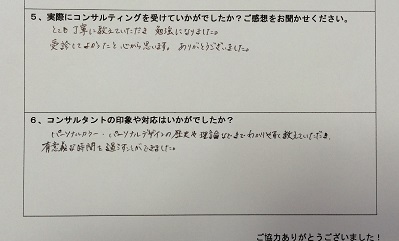 ５、実際にコンサルティングを受けていかがでしたか？ご感想をお聞かせください。
とても丁寧に教えていただき 勉強になりました。
受診してよかったと心から思います。ありがとうございました。
６、コンサルタントの印象や対応はいかがでしたか？
パーソナルカラー・パーソナルデザインの歴史や理論などまでわかりやすく教えていただき、
有意義な時間を過ごすことができました。
ご協力ありがとうございました！